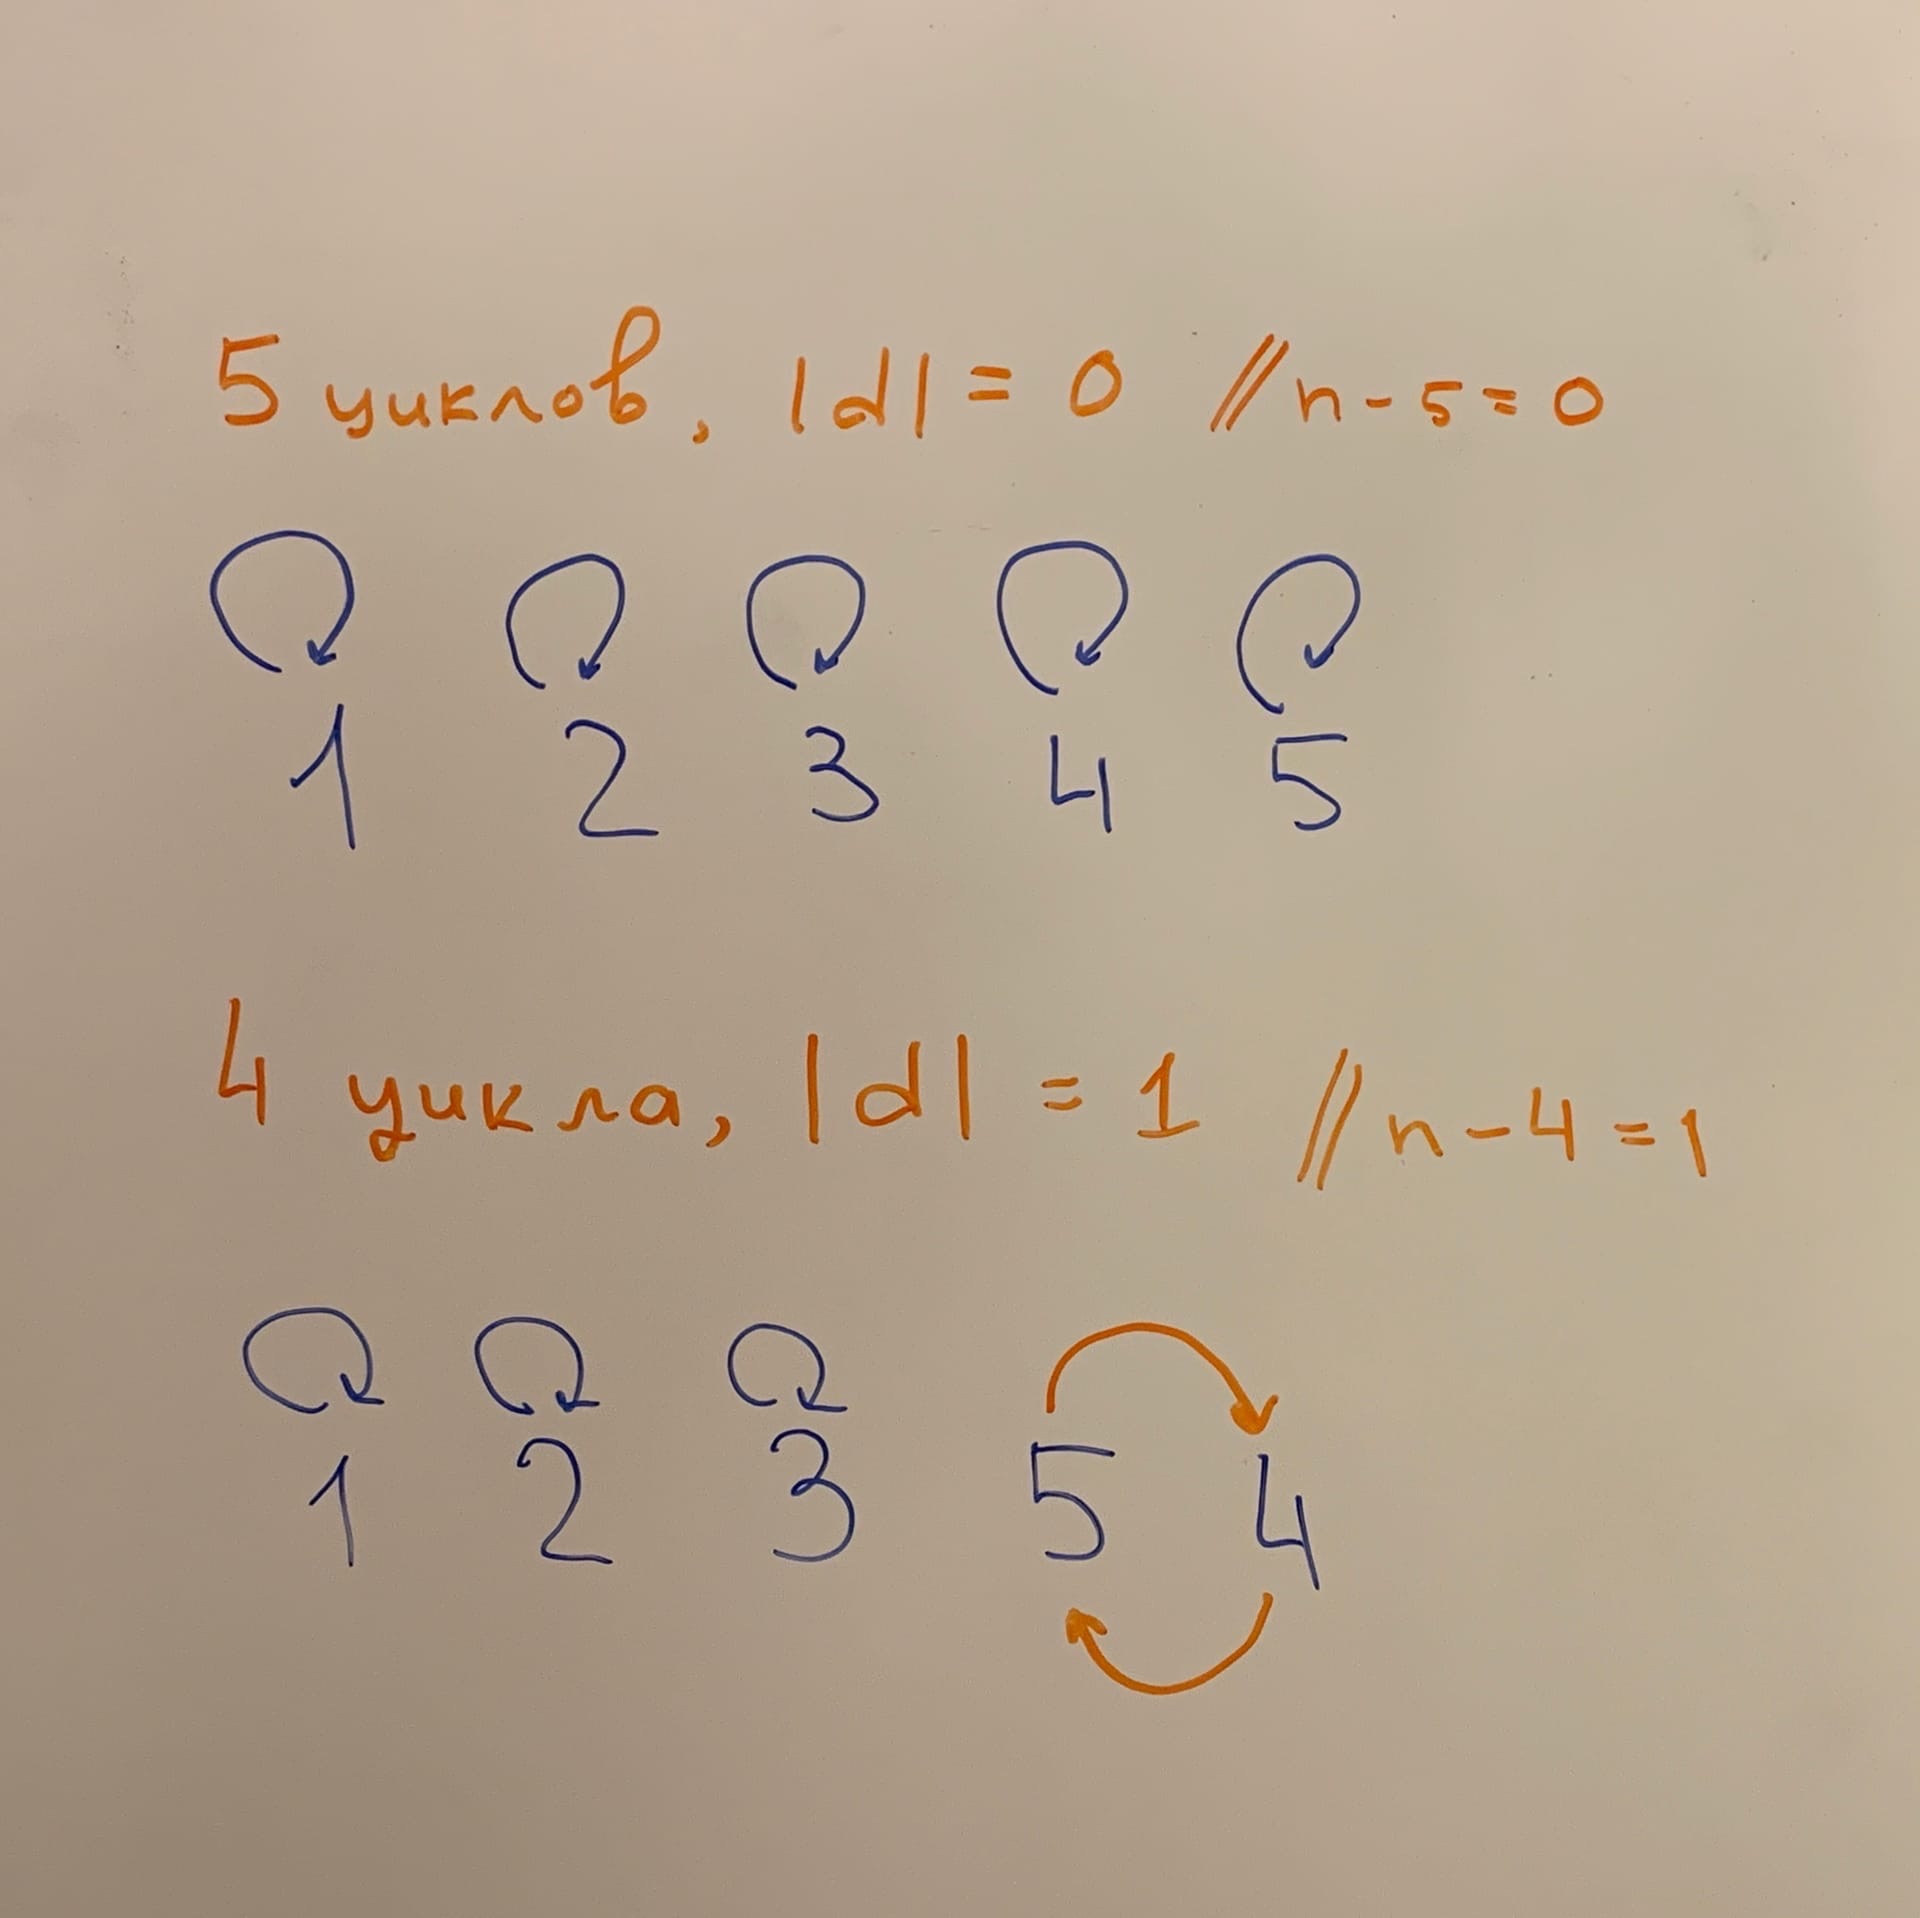 5 циклов, |d| = 0 // n - 5 = 0
1 2 3 4 5
4 цикла, |d| = 1 // n - 4 = 1
1 2 3 5 4